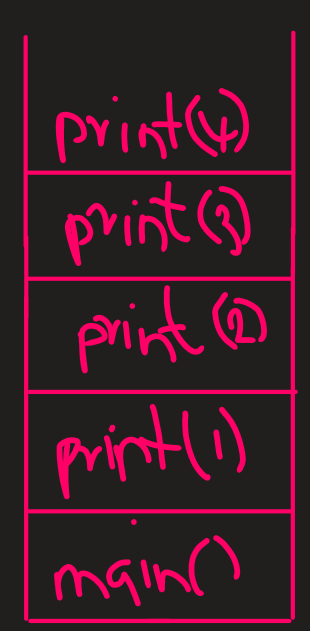 print(4)
print(3)
print (2)
print(1)
main()